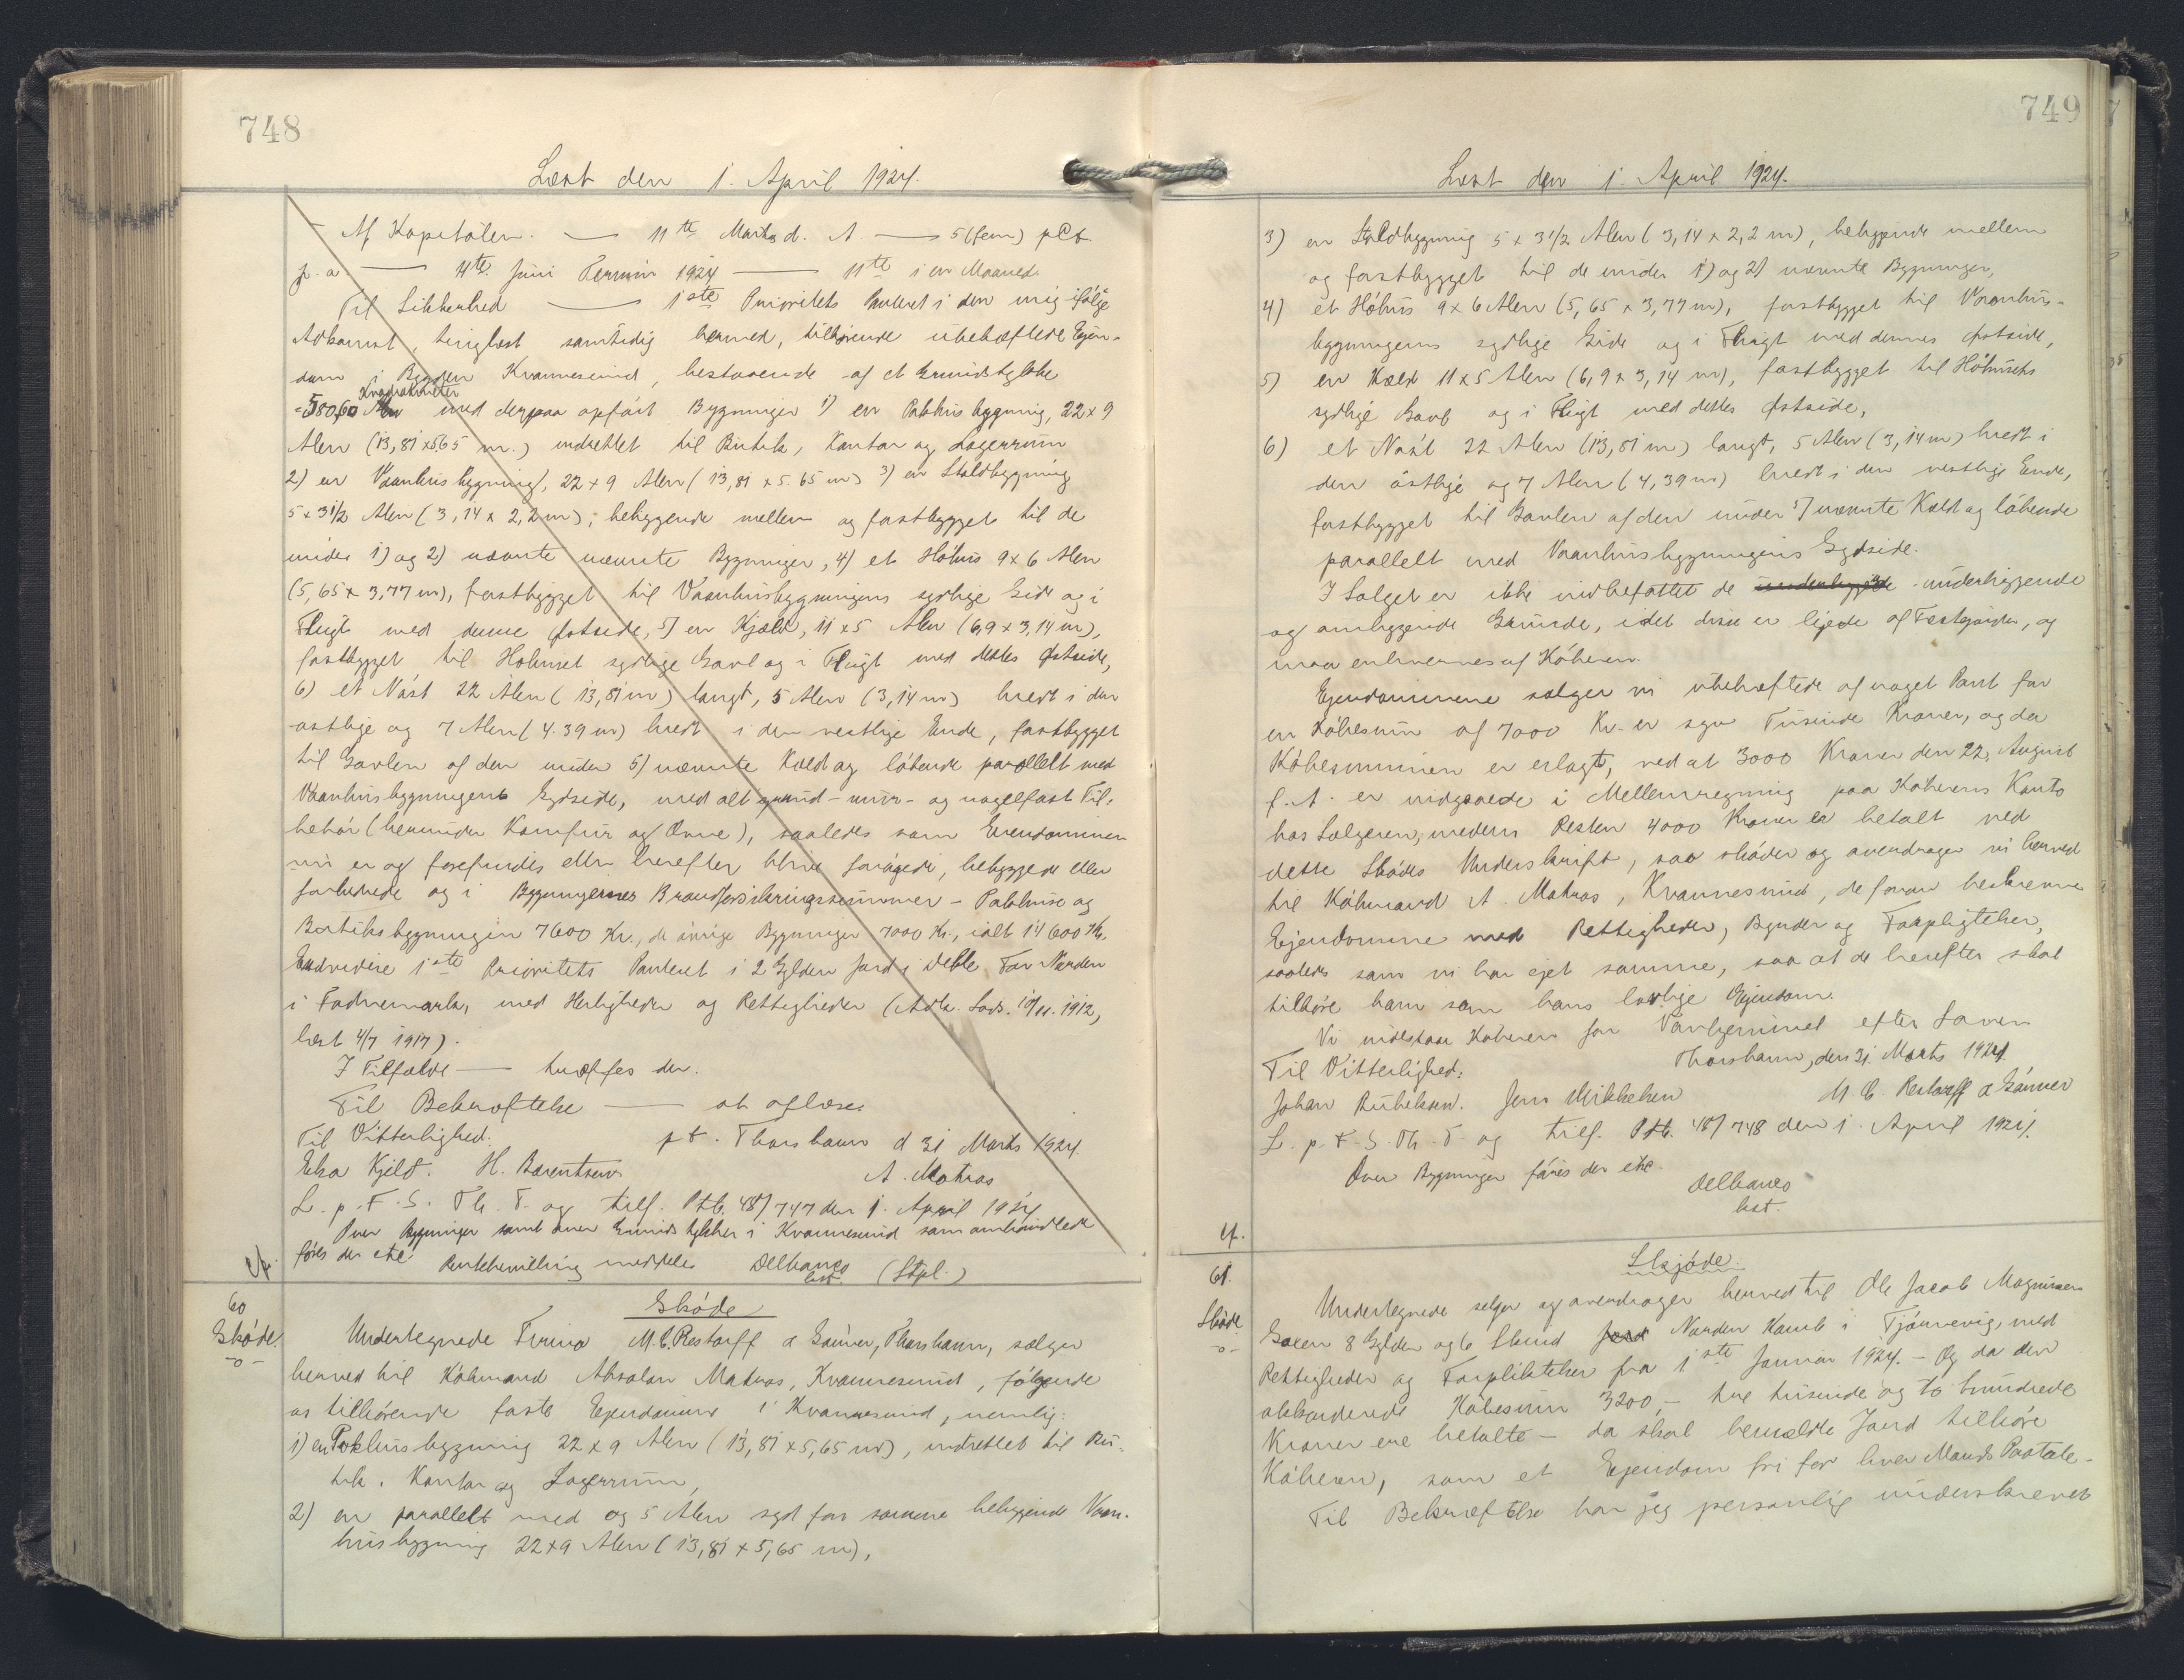 748
Læst den 1. April 1924.
Af Kapitalen. — 11te Marts d. A — 5 (fem) pCt
p. a. — 11te Juni Termin 1924 — 11te i en Maaned.
Til Sikkerhed — 1ste Prioritets Panteret i den mig ifølge
Adkomst, tinglæst samtidig hermed, tilhørende ubehæftede Ejen-
dom i Bygden Kvannesund, bestaaende af et Grundstykke
Kvadratmeter
580,60 med derpaa opført Bygninger 1) en Pakhusbygning, 22 x 9
Alen (13,81 x 5,65 m.) indrettet til Butik, Kontor og Lagerrum
2) en Vaanhusbygning, 22 x 9 Alen (13,81 x 5.65 m) 3) en Staldbygning
5 x 3 1/2 Alen (3,14 x 2,2 m), beliggende mellem og fastbygget til de
under 1) og 2) nævnte nævnte Bygninger, 4) et Höhus 9 x 6 Alen
(5,65 x 3,77 m), fastbygget til Vaanhusbygningens sydlige Side og i
Flugt med denne Østside, 5) en Kjæld, 11 x 5 Alen (6,9 x 3,14 m),
fastbygget til Hohuset sydlige Gavl og i Flugt med dettes Østside,
6) et Nást 22 Alen (13,81 m) langt, 5 Alen (3,14 m) bredt i den
østlige og 7 Alen (4.39 m) bredt i den vestlige Ende, fastbygget
til Gavlen af den under 5) nævnte Kæld og løbende parallelt med
Vaanhusbygningens Sydside, med alt grund- mur- og nagelfast Til-
behör (herunder Komfur og Ovne), saaledes som Ejendommen
nu er og forefindes eller herefter blive forøgede, bebyggede eller
forbedrede og i Bygningernes Brandforsikringssummer – Pakhuse og
Butiksbygningen 7600 Kr., de øvrige Bygninger 7000 Kr., ialt 14600 Kr.
Endvidere 1ste Prioritets Panteret i 2 Gylden Jord i Deble Før Norden
i Fadnemark, med Herligheder og Rettigheder (Adk. Lods. 10/11. 1912,
læst 4/7 1917).
I Tilfælde — træffes der.
Til Bekræftelse — at aflæse.
Til Vitterlighed. pt. Thorshavn d 31 Marts 1924.
Elsa Kjeld. H. Barentsen A. Matras
L. p. F. S. Th. T. og tilf. Ptb. 48/747 den 1. April 1924
Over Bygninger samt over Grundstykker i Kvannesund som omhandlede
føres der etc. Renteberilling meddeles Delbanco (Stpl.)
cst.
cf.
60
Skøde
-o-
Skøde
Undertegnede Firma M.C. Restorff & Sónner, Thorshavn, sælger
herved til Kóbmand Absalon Matras, Kvannesund, fólgende
os tilhørende faste Ejendomme i Kvannesund, nemlig:
1) en Pakhusbygning 22 x 9 Alen (13,81 x 5,65 m), indrettet til Bu-
tik, Kontor og Lagerrum,
2) en parallelt med og 5 Alen syd for samme beliggende Vaan-
husbygning 22 x 9 Alen (13,81 x 5,65 m),
749
Læst den 1. April 1924.
3) en Staldbygning 5 x 3 1/2 Alen (3,14 x 2,2 m), beliggende mellem
og fastbygget til de under 1) og 2) nævnte Bygninger,
4) et Höhus 9 x 6 Alen (5,65 x 3,77 m), fastbygget til Vaanhus-
bygningens sydlige Side og i Flugt med dennes Østside,
5) en Kæld 11 x 5 Alen (6,9 x 3,14 m), fastbygget til Höhusets
sydlige Gavl og i Flugt med dettes Østside,
6) et Nást 22 Alen (13,81 m) langt, 5 Alen (3,14 m) bredt i
den östlige og 7 Alen (4,39 m) bredt i den vestlige Ende,
fastbygget til Gavlen af den under 5) nævnte Kæld og løbende
parallelt med Vaanhusbygningens Sydside.
I Salget er ikke indbefattet de underliggende
og omliggende Grunde, idet disse er lejede af Festejorden, og
maa erhverves af Köberen.
Ejendommene sælger vi ubehæftede af noget Pant for
en Købesum af 7000 Kr. er syv Tusinde Kroner, og da
Købesummen er erlagt, ved at 3000 Kroner den 22. August
f. A. er indgaaede i Mellemregning paa Køberens Konto
hos Sælgeren, medens Resten 4000 Kroner er betalt ved
dette Skødes Underskrift, saa skøder og overdrager vi herved
til Købmand A. Matras, Kvannesund, de foran beskrevne
Ejendomme med Rettigheder, Byrder og Forpligtelser,
saaledes som vi har ejet samme, saa at de herefter skal
tilhøre ham som hans lovlige Ejendom.
Vi indestaa Køberen for Vanhjemmel efter Loven
Thorshavn, den 31. Marts 1924.
Til Vitterlighed:
Johan Rubeksen. Jens Mikkelsen M. C. Restorff & Sónner
L. p. F. S. Th. T. og tilf. Ptb. 48/748 den 1. April 1924.
Over Bygninger føres der etc.
Delbanco
cst.
cf.
61.
Skøde
-o-
Skjøde.
Undertegnede selger og overdrager herved til Ole Jacob Magnussen
Saxen 8 Gylden og 6 Skind Norden Kamb i Tjørnevig, med
Rettigheder og Forpliktelser fra 1ste Januar 1924. – Og da den
akkorderede Købesum 3200,- tre tusinde og to hundrede
Kroner ere betalte – da skal bemeldte Jord tilhøre
Köberen, som et Ejendom fri for hver Mands Paatale.
Til Bekræftelse har jeg personlig underskrevet